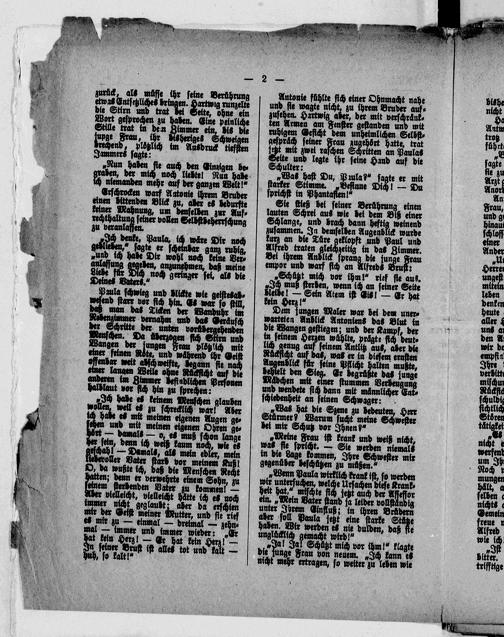 — 2 —
zurück, als müsse ihr seine Berührung
etwas Entsetzliches bringen. Hartwig runzelte
die Stirn und trat bei Seite, ohne ein
Wort gesprochen zu haben. Eine peinliche
Stille trat in dem Zimmer ein, bis die
junge Frau, ihr bisheriges Schweigen
brechend, plötzlich im Ausdruck tiefsten
Jammers sagte:
„Nun haben sie auch den Einzigen be-
graben, der mich noch liebte! Nun habe
ich niemanden mehr auf der ganzen Welt!“
Erschrocken warf Antonie ihrem Bruder
einen bittenden Blick zu, aber es bedurfte
keiner Mahnung, um denselben zur Auf-
rechthaltung seiner vollen Selbstbeherrschung
zu veranlassen.
„Ich denke, Paula, ich wäre Dir noch
geblieben,“ sagte er scheinbar ganz ruhig,
„und ich habe Dir wohl noch keine Ver-
anlassung gegeben, anzunehmen, daß meine
Liebe für Dich noch geringer sei, als die
Deines Vaters.“
Paula schwieg und blickte wie geistesab-
wesend starr vor sich hin. Es war so still,
daß man das Ticken der Wanduhr im
Nebenzimmer vernahm und das Geräusch
der Schritte der unten vorübergehenden
Menschen. Da überzogen sich Stirn und
Wangen der jungen Frau plötzlich mit
einer feinen Röte, und während ihr Geist
offenbar weit abschweifte, begann sie nach
einer langen Weile ohne Rücksicht auf die
anderen im Zimmer befindlichen Personen
halblaut vor sich hin zu sprechen:
„Ich habe es keinem Menschen glauben
wollen, weil es zu schrecklich war! Aber
ich habe es mit meinen eigenen Augen ge-
sehen und mit meinen eigenen Ohren ge-
hört — damals — o, es muß schon lange
her sein, denn ich weiß kaum noch, wie es
geschah! — Damals, als mein edler, mein
liebevoller Vater starb vor meinem Fuß!
O, da wußte ich, daß die Menschen Recht
hatten; denn er verwehrte einem Sohn, zu
seinem sterbenden Vater zu kommen! —
Aber vielleicht, vielleicht hätte ich es noch
immer nicht geglaubt; aber da erschien
mir der Geist meiner Mutter, und sie rief
es mir zu — einmal — dreimal — zehn-
mal — immer und immer wieder: „Er
hat kein Herz! — Er hat kein Herz! —
In seiner Brust ist alles tot und kalt —
huh, so kalt!“
Antonie fühlte sich einer Ohnmacht nahe
und sie wagte nicht, zu ihrem Bruder auf-
zusehen. Hartwig aber, der mit verschränk-
ten Armen am Fenster gestanden und mit
ruhigem Gesicht dem unheimlichen Selbst-
gespräch seiner Frau zugehört hatte, trat
jetzt mit zwei raschen Schritten an Paulas
Seite und legte ihr seine Hand auf die
Schulter:
„Was hast Du, Paula?“ sagte er mit
starker Stimme. „Besinne Dich! — Du
sprichst in Phantasien!“
Sie stieß bei seiner Berührung einen
lauten Schrei aus wie bei dem Biß einer
Schlange, und brach dann heftig weinend
zusammen. In demselben Augenblick wurde
kurz an die Türe geklopft und Paul und
Alfred traten gleichzeitig in das Zimmer.
Bei ihrem Anblick sprang die junge Frau
empor und warf sich an Alfreds Brust:
„Schützt mich vor ihm!“ rief sie aus.
„Ich muß sterben, wenn ich an seiner Seite
bleibe! — Sein Atem ist Eis! — Er hat
kein Herz!“
Dem jungen Maler war bei dem uner-
warteten Anblick Antoniens das Blut in
die Wangen gestiegen; und der Kampf, der
in seinem Herzen wühlte, prägte sich deut-
lich genug auf seinem Antlitz aus, aber die
Rücksicht auf das, was er in diesem ernsten
Augenblick für seine Pflicht halten mußte,
behielt den Sieg. Er begrüßte das junge
Mädchen mit einer stummen Verbeugung
und wendete sich dann mit männlicher Ent-
schiedenheit an seinen Schwager:
„Was hat die Szene zu bedeuten, Herr
Stürmer? Warum sucht meine Schwester
bei mir Schutz vor Ihnen?“
„Meine Frau ist krank und weiß nicht,
was sie spricht. — Sie werden niemals
in die Lage kommen, Ihre Schwester mir
gegenüber beschützen zu müssen.“
„Wenn Paula wirklich krank ist, so werden
wir untersuchen, welche Ursachen diese Krank-
heit hat,“ mischte sich jetzt auch der Assessor
ein. „Mein Vater stand ja leider vollständig
unter Ihrem Einfluß; in ihren Brüdern
aber soll Paula jetzt eine starke Stütze
haben. Wir werden es nie dulden, daß sie
unglücklich gemacht wird!“
„Ja! Ja! Schützt mich vor ihm!“ klagte
die junge Frau von neuem. „Ich kann es
nicht mehr ertragen, so weiter zu leben wie